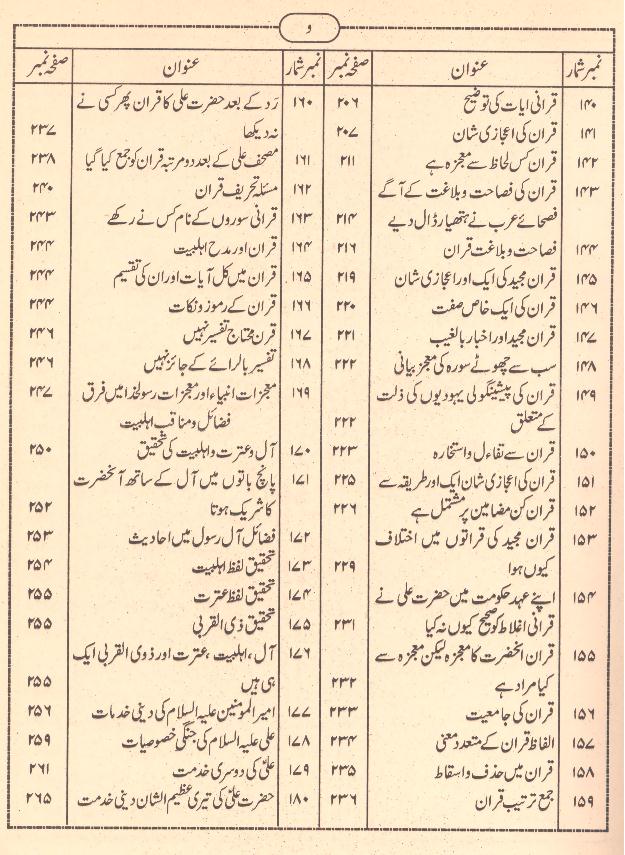 و
نمبر شمار عنوان صفحہ نمبر
۱۴۰ قرانی ایات کی توضیح ۲۰۶
۱۴۱ قران کی اعجازی شان ۲۰۷
۱۴۲ قران کس لحاظ سے معجزہ ہے ۲۱۱
۱۴۳ قران کی فصاحت و بلاغت کے آگے
فصحائے عرب نے ہتھیار ڈال دیے ۲۱۴
۱۴۴ فصاحت و بلاغت قران ۲۱۶
۱۴۵ قران مجید کی ایک اور اعجازی شان ۲۱۹
۱۴۶ قران کی ایک خاص صفت ۲۲۰
۱۴۷ قران مجید اور اخبار بالغیب ۲۲۱
۱۴۸ سب سے چھوٹے سورہ کی معجز بیانی ۲۲۲
۱۴۹ قران کی پیشینگوئی یہودیوں کی ذلت
کے متعلق ۲۲۲
۱۵۰ قران سے تفاءل و استخارہ ۲۲۳
۱۵۱ قران کی اعجازی شان ایک اور طریقہ سے ۲۲۵
۱۵۲ قران کن مضامین پر مشتمل ہے ۲۲۶
۱۵۳ قران مجید کی قراتوں میں اختلاف
کیوں ہوا ۲۲۹
۱۵۴ اپنے عہد حکومت میں حضرت علی نے
قرانی اغلاط کو صحیح کیوں نہ کیا ۲۳۱
۱۵۵ قران انحضرت کا معجزہ لیکن معجزہ سے
کیا مراد ہے ۲۳۲
۱۵۶ قران کی جامعیت ۲۳۳
۱۵۷ الفاظ قران کے متعدد معنی ۲۳۴
۱۵۸ قران میں حذف و اسقاط ۲۳۵
۱۵۹ جمع ترتیب قران ۲۳۶
نمبر شمار عنوان صفحہ نمبر
۱۶۰ رَد کے بعد حضرت علی کا قران پھر کسی نے
نہ دیکھا ۲۳۷
۱۶۱ مصحف علی کے بعد دو مرتبہ قران کو جمع کیا گیا ۲۳۸
۱۶۲ مسئلہ تحریف قران ۲۴۰
۱۶۳ قرانی سوروں کے نام کس نے رکھے ۲۴۳
۱۶۴ قران اور مدح اہلبیت ۲۴۴
۱۶۵ قران میں کل آیات اور ان کی تقسیم ۲۴۴
۱۶۶ قران کے رموز و نکات ۲۴۴
۱۶۷ قرن محتاج تفسیر نہیں ۲۴۶
۱۶۸ تفسیر بالرائے کے جائز نہیں ۲۴۶
۱۶۹ معجزات انبیاء اور معجزات رسولخدا میں فرق ۲۴۷
فضائل و مناقب اہلبیت
۱۷۰ آل و عترت و اہلبیت کی تحقیق ۲۵۰
۱۷۱ پانچ باتوں میں آل کے ساتھ آنحضرت
کا شریک ہوتا ۲۵۲
۱۷۲ فضائل آل رسول میں احادیث ۲۵۳
۱۷۳ تحقیق لفظ اہلبیت ۲۵۴
۱۷۴ تحقیق لفظ عترت ۲۵۵
۱۷۵ تحقیق ذی القربی ۲۵۵
۱۷۶ آل، اہلبیت، عترت اور ذوی القربی ایک
ہی ہیں ۲۵۵
۱۷۷ امیر المومنین علیہ السلام کی دینی خدمات ۲۵۶
۱۷۸ علی علیہ السلام کی جنگی خصوصیات ۲۵۹
۱۷۹ علیؑ کی دوسری خدمت ۲۶۱
۱۸۰ حضرت علیؑ کی تیری عظیم الشان دینی خدمت ۲۶۵